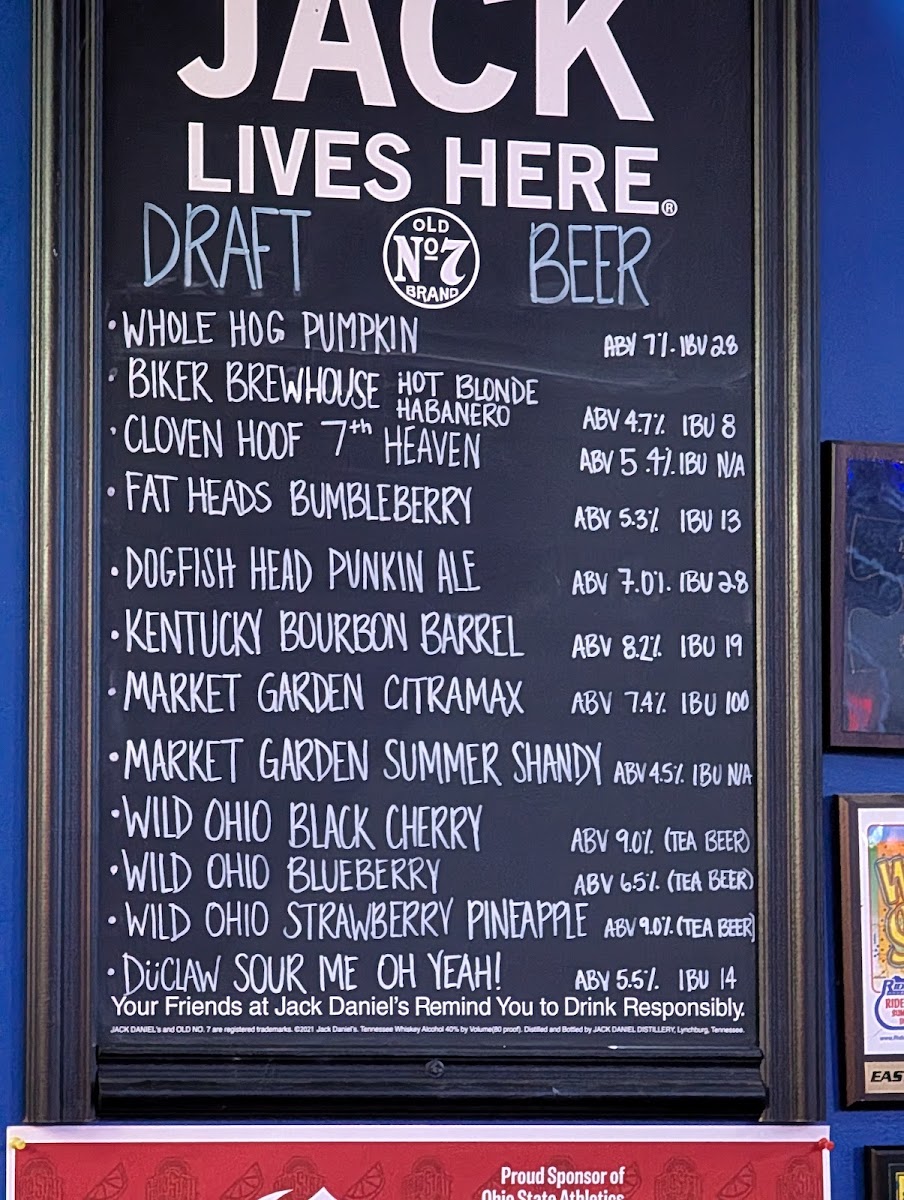 JACK
LIVES HERE®
DRAFT
OLD
Nº7
BRAND
BEER
•WHOLE HOG PUMPKIN ABV 7%. IBU 28
•BIKER BREWHOUSE HOT BLONDE
HABANERO ABV 4.7% IBU 8
•CLOVEN HOOF 7th HEAVEN ABV 5.4% IBU N/A
•FAT HEADS BUMBLEBERRY ABV 5.3% IBU 13
•DOGFISH HEAD PUNKIN ALE ABV 7.0%. IBU 28
•KENTUCKY BOURBON BARREL ABV 8.2% IBU 19
•MARKET GARDEN CITRAMAX ABV 7.4% IBU 100
•MARKET GARDEN SUMMER SHANDY ABV 4.5% IBU N/A
•WILD OHIO BLACK CHERRY ABV 9.0% (TEA BEER)
•WILD OHIO BLUEBERRY ABV 6.5% (TEA BEER)
•WILD OHIO STRAWBERRY PINEAPPLE ABV 9.0% (TEA BEER)
•DüCLAW SOUR ME OH YEAH! ABV 5.5% IBU 14
Your Friends at Jack Daniel's Remind You to Drink Responsibly.
JACK DANIEL'S and OLD NO. 7 are registered trademarks. ©2021 Jack Daniel's. Tennessee Whiskey Alcohol 40% by Volume(80 proof). Distilled and Bottled by JACK DANIEL DISTILLERY, Lynchburg, Tennessee.
Proud Sponsor of
Ohio State Athletics
EAS